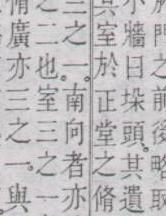 門前後略
小牆日垛頭其遺
其室於正堂之脩
三之一。南向者亦
之二也。室三之一
脩廣亦三之一。與